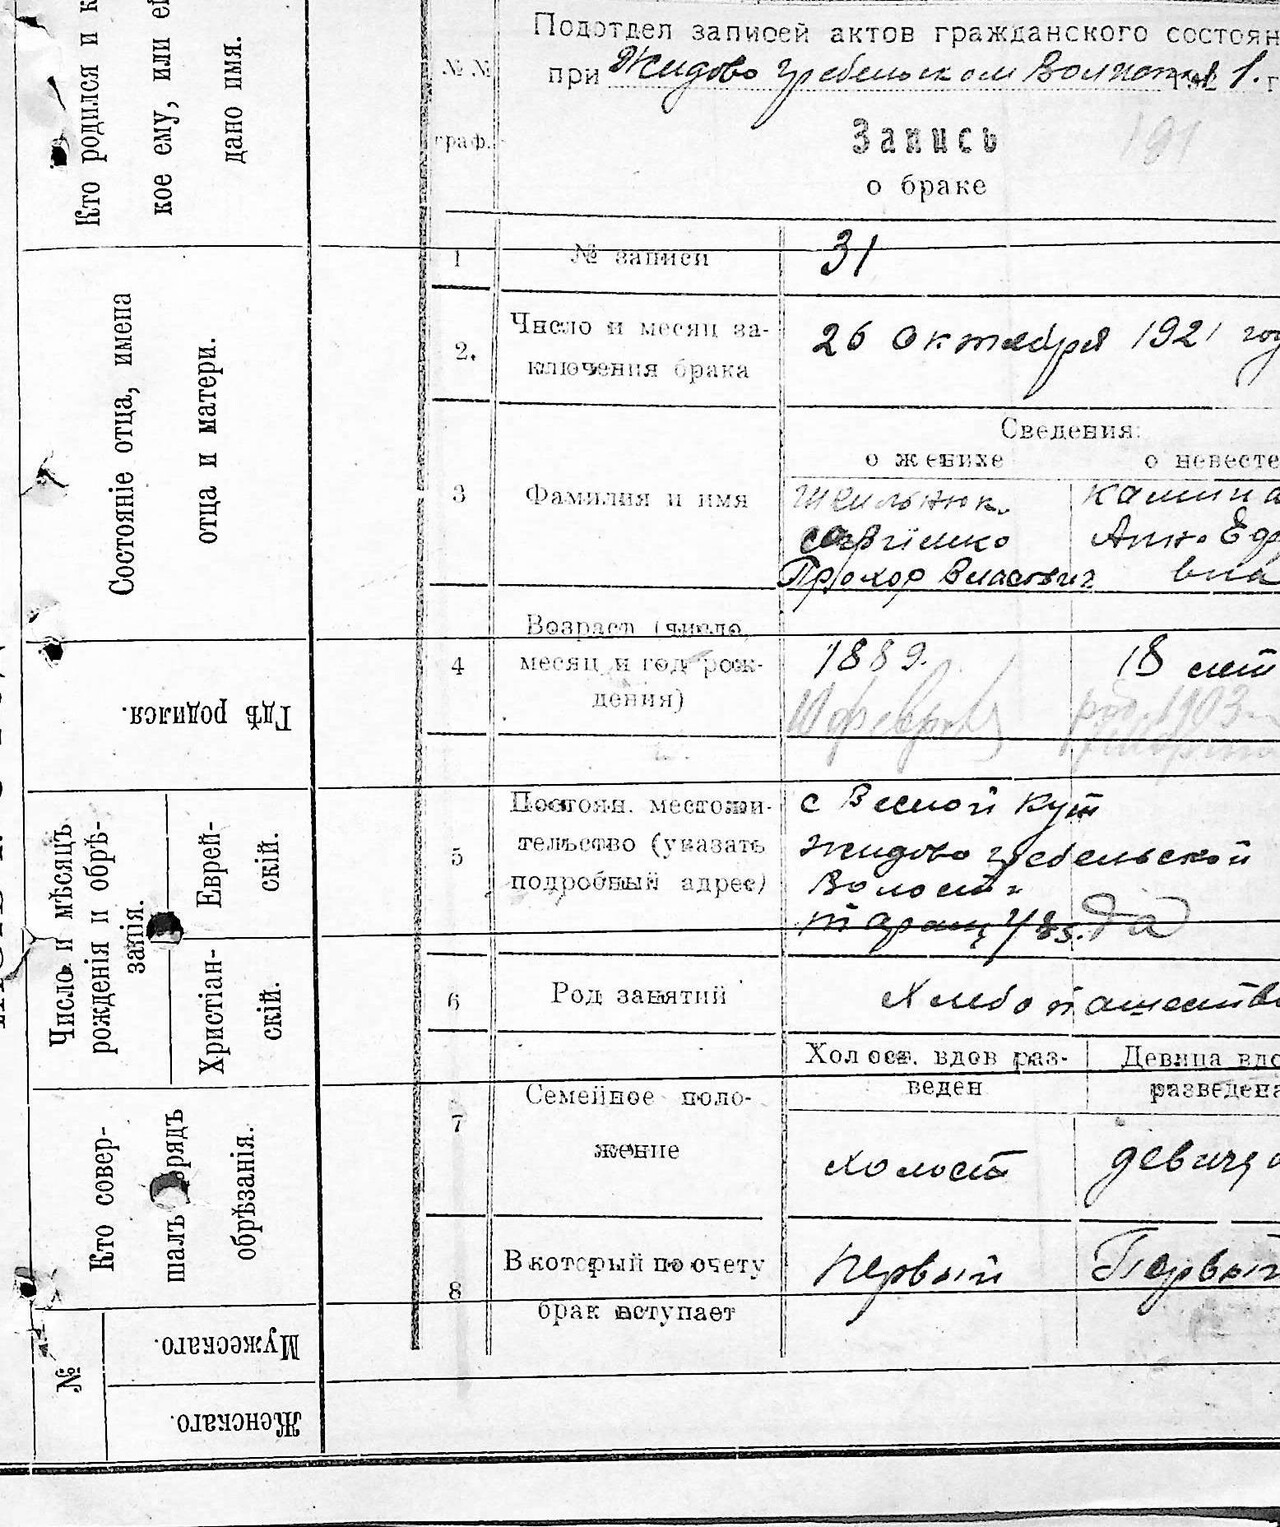 Кто родился и к
кое ему, или е
дано имя.
Состояніе отца, имена
отца и матери.
Гдѣ родился.
Число и мѣсяцъ
рожденія и обрѣ-
занія.
Еврей-
скій.
Христіан-
скій.
Кто совер-
шалъ обрядъ
обрѣзанія.
№
Мужескаго.
Женскаго.
Подотдел записей актов гражданского состоян
при Жидово гребельском 1. г
№№
граф.
Запись
191
о браке
1 № записи 31
2. Число и месяц за-
ключения брака
26 октября 1921 год
Сведения:
о женихе о невесте
3 Фамилия и имя
Прохор Власович
вна
4 Возраст (число,
месяц и год рож-
дения)
1889. 18 лет
февраля род. 1903
5 Постоян. местожи-
тельство (указать
подробный адрес)
с Весной Кут
Жидово гребельской
Волости
Таращ у/ез.да
6 Род занятий Хлебопашеств
7 Семейное поло-
жение
Холост. вдов раз-
веден
Девица вдо
разведена
холост девица
8 В который по счету
брак вступает
первый Первый